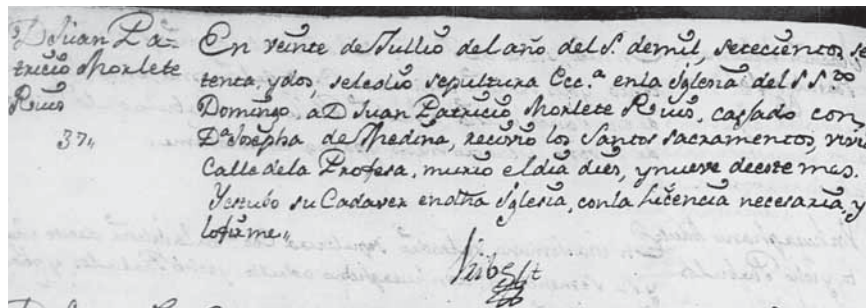 D. Juan Pa-
tricio Morlete
Ruis
37,,
En veinte de Jullio del año del S. de mil, setecientos, se
tenta, y dos, se le dio sepultura Ecc.ª en la Yglesia del S S.to
Domingo, a D. Juan Patricio Morlete Ruis, cassado con
D.ª Josepha de Medina, recivio los Santos sacramentos, vivia
Calle de la Profesa, murio el dia dies, y nueve de este mes.
Y estubo su Cadaver en otra Yglesia, con la Licencia necesaria, y
lo firme,,